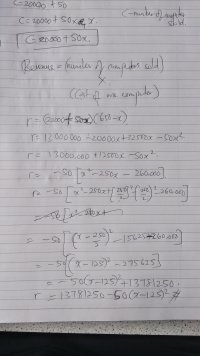 C=20000 + 50
(-number of computers sold)
C = 20000 + 50x, x.
C = 20000 + 50x,
Revenue = (number of computers sold)
×
(cost of one computer)
r = (20000 + 50x)(650-x)
r = 13000000 - 20000x + 32500x - 50x²
r = 13000000 + 12500x - 50x².
r = -50 [x² - 250x - 260000]
r = -50 [x² - 250x + (250/2)² - (250/2)² - 260000]
= -50 [(x - 250/2)² - 15625 - 260000]
= -50 (x-125)² - 275625]
= -50(x-125)² + 13781250.
r = 13781250 - 50(x-125)²